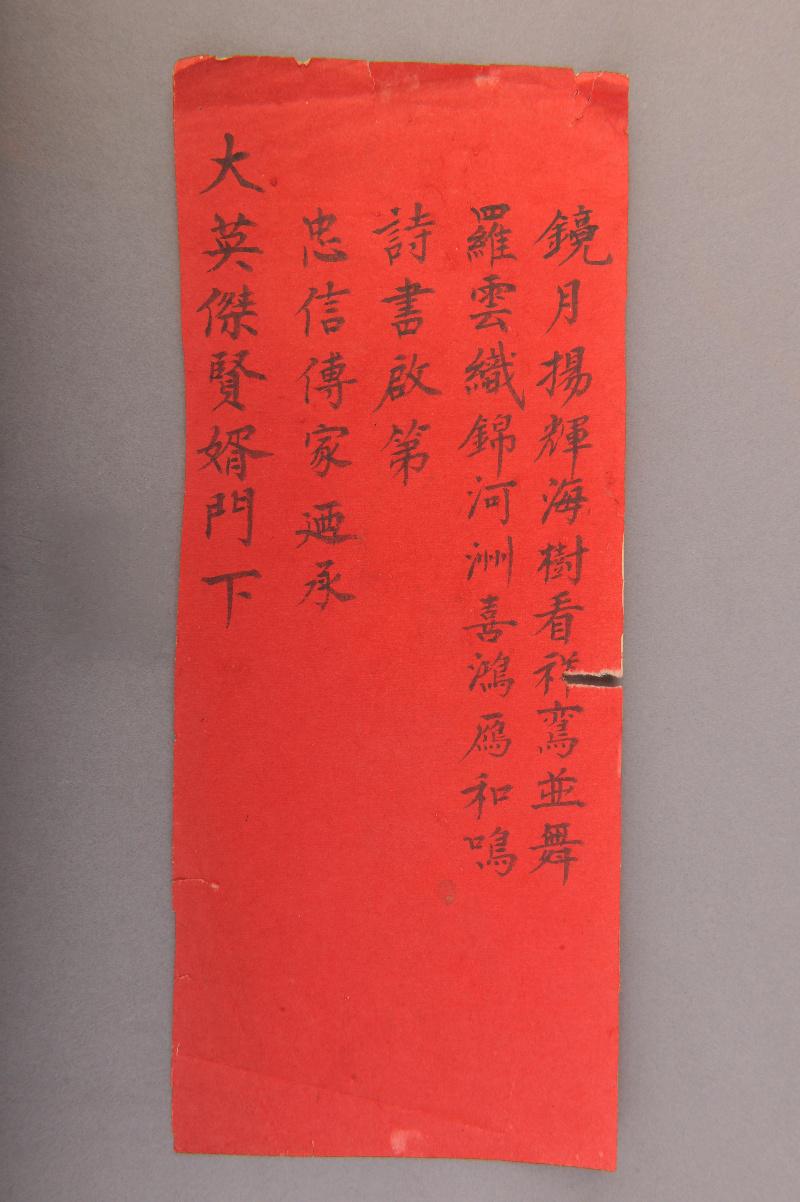 鏡月揚輝海樹看祥鸞並舞
羅雲織錦河洲喜鴻雁和鳴
詩書啟第
忠信傳家迺承
大英傑賢婿門下